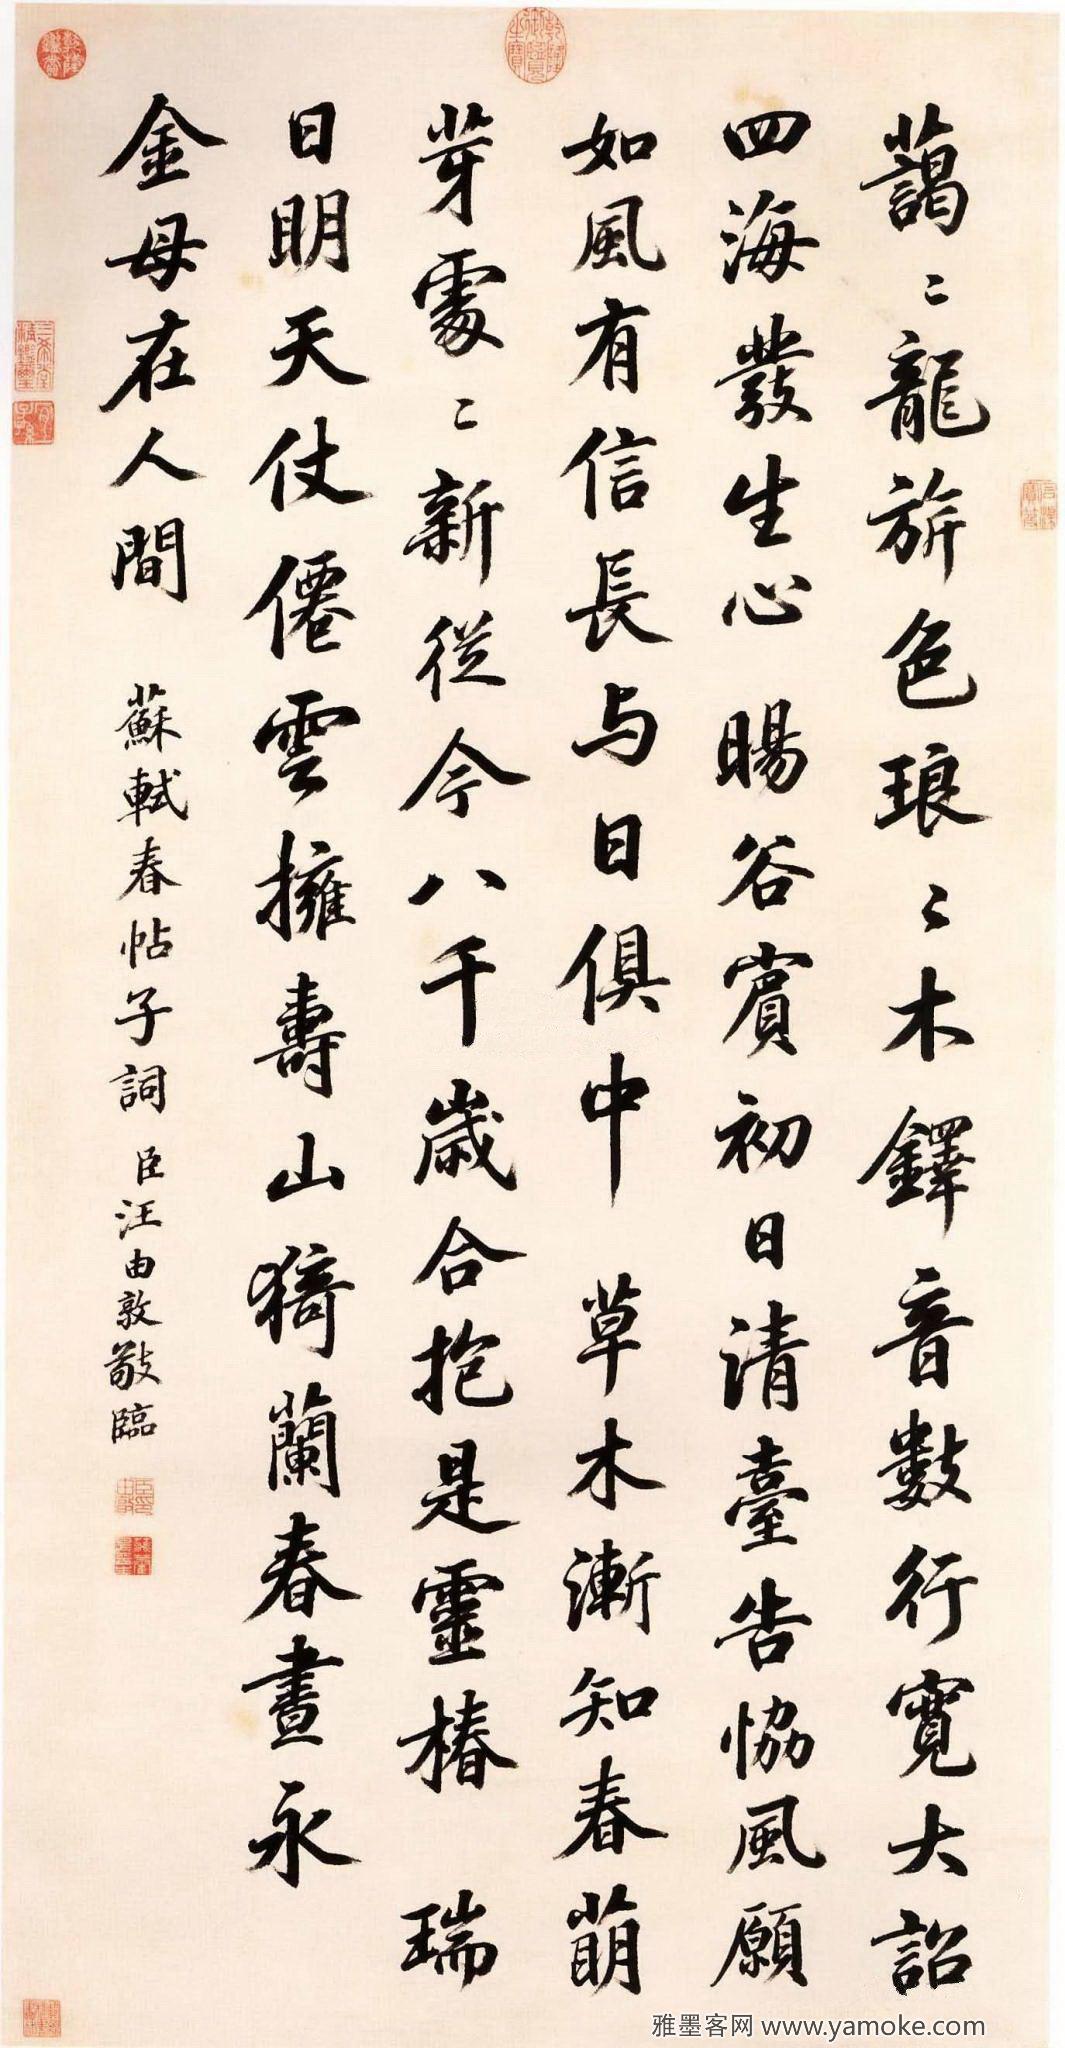 藹〻龍旂色琅〻木鐸音數行寬大詔
四海發生心 暘谷賓初日清臺告協風願
如風有信長与日俱中 草木漸知春萌
芽處〻新從今八千歲合抱是靈椿 瑞
日明天仗僊雲擁壽山猗蘭春晝永
金母在人間
蘇軾春帖子詞 臣汪由敦敬臨
乾隆御覽之寶
乾隆鑑賞
三希堂精鑑璽
宜子孫
雅墨客网 www.yamoke.com